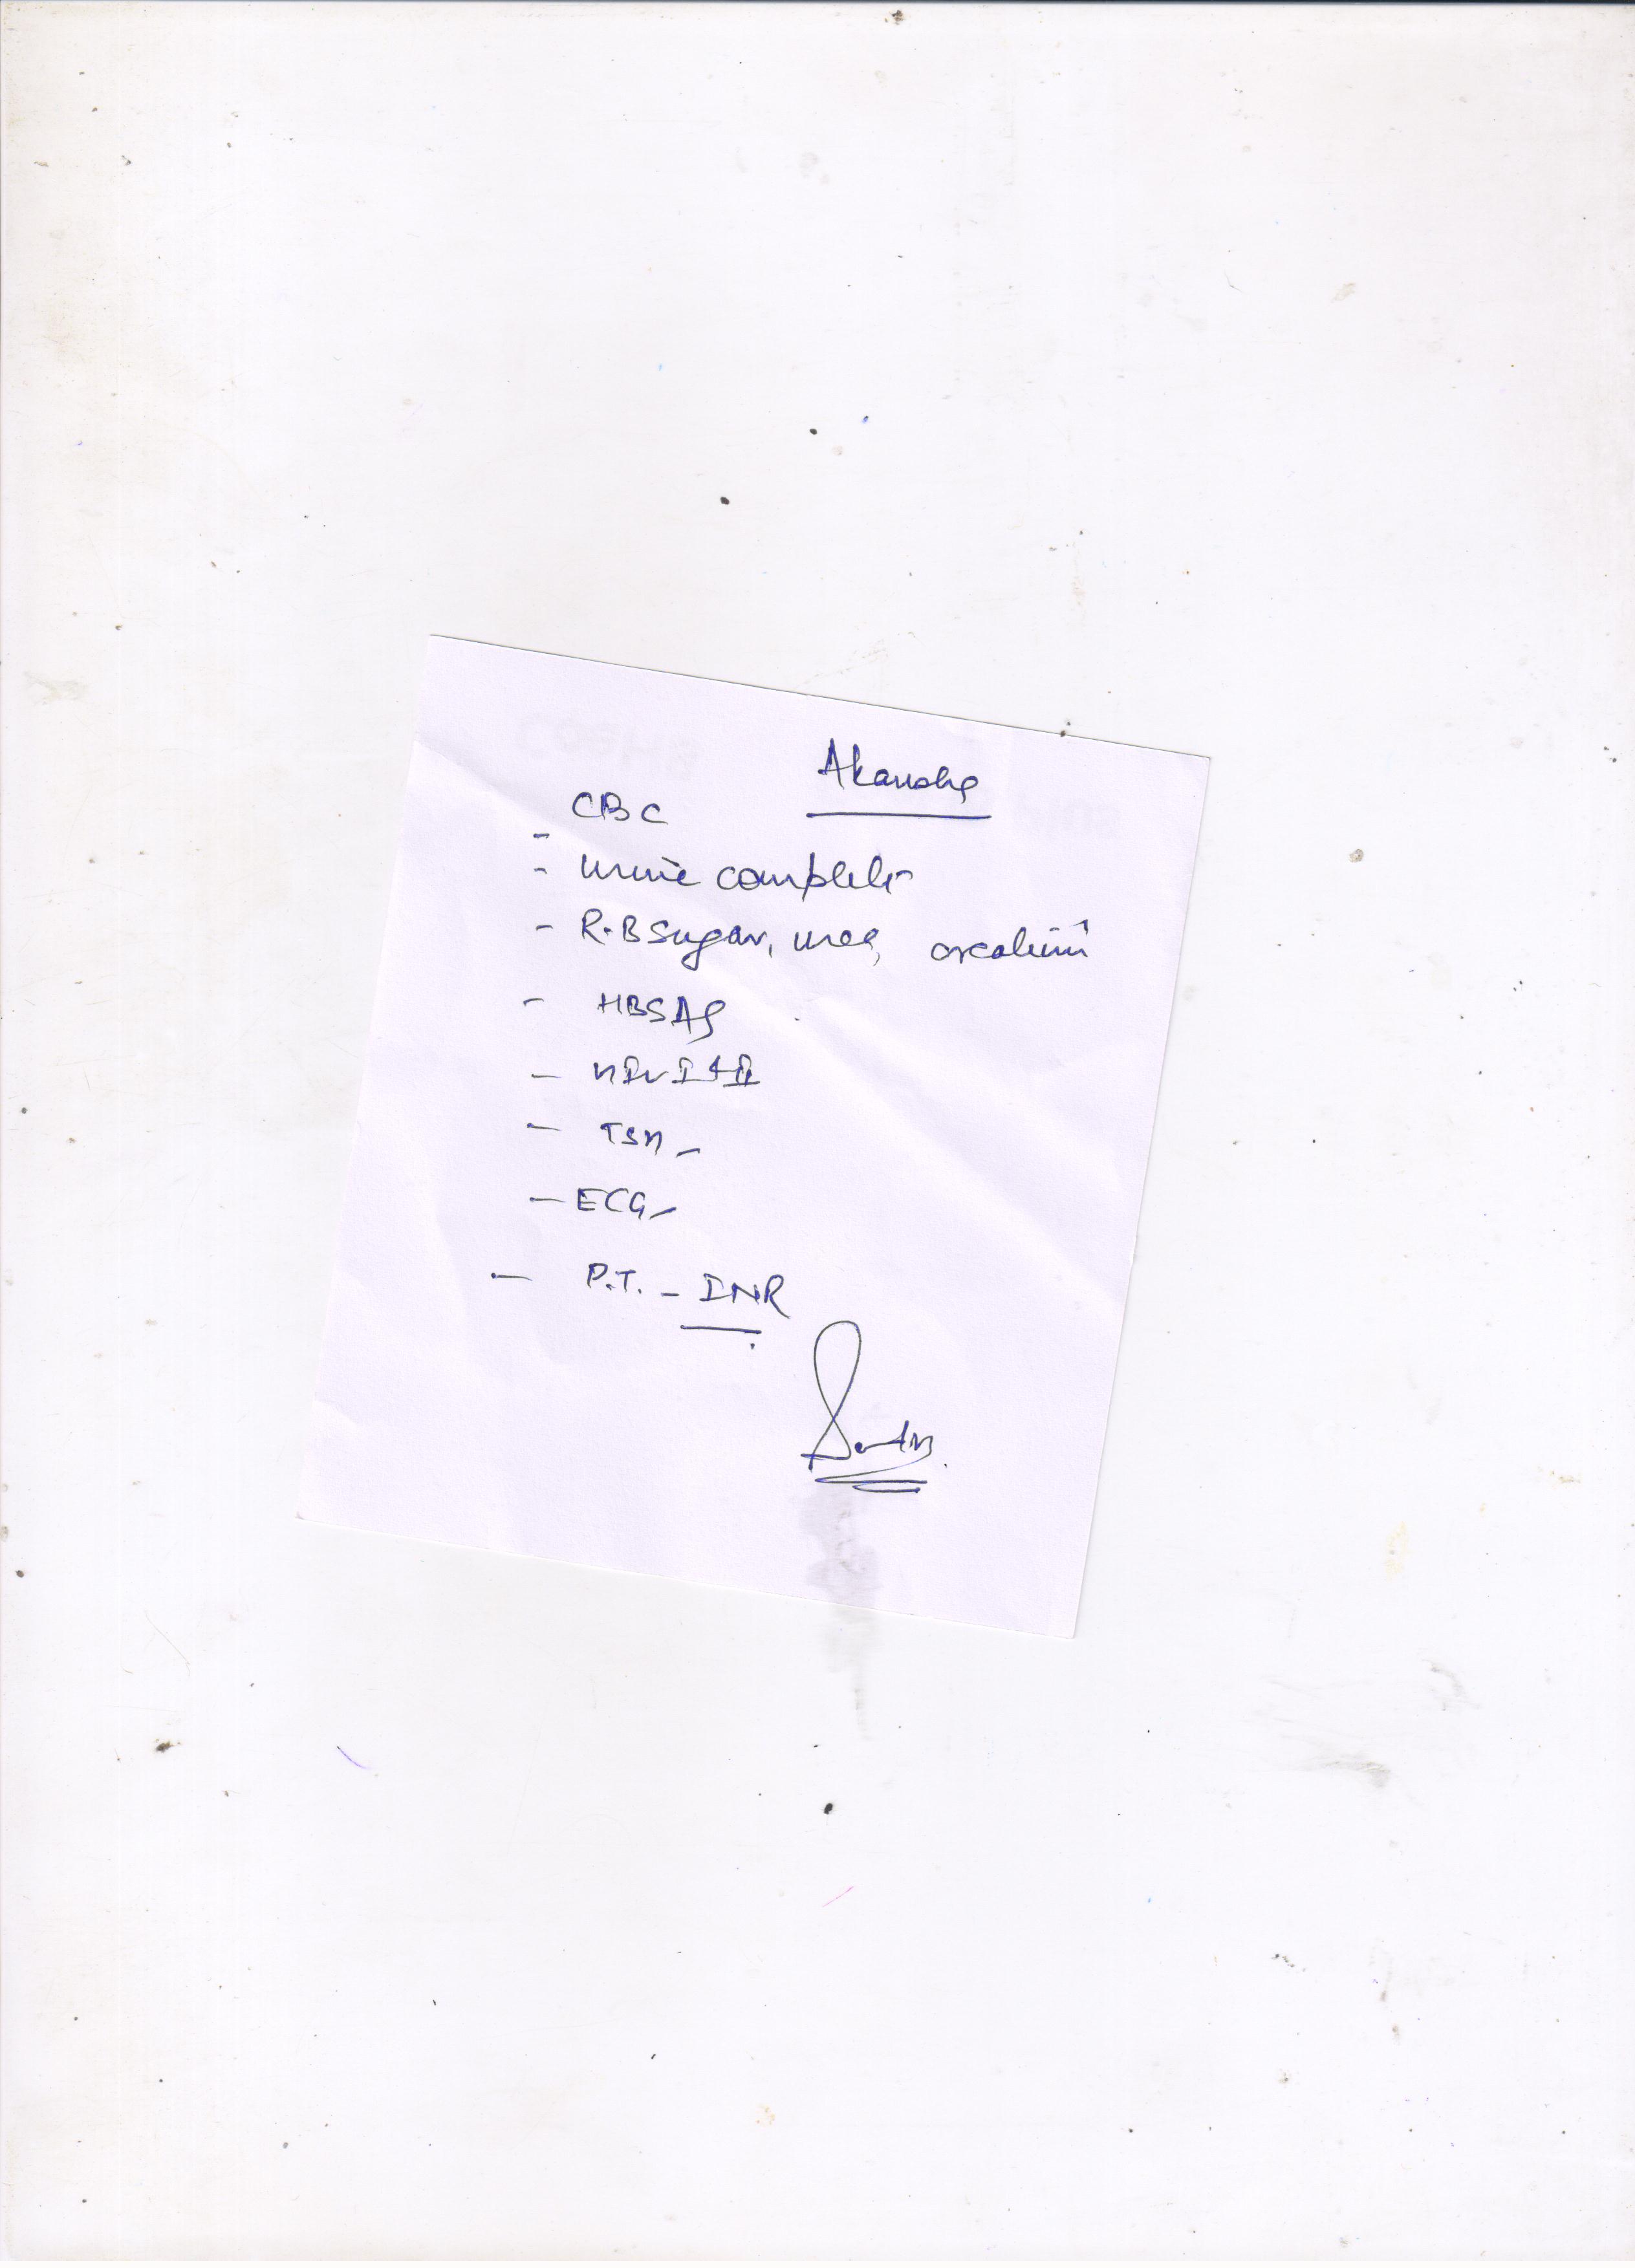 Akansha
CBC
- Urine complete
- R.B Sugar, urea, creatinin
- HBSAg
- HIV I & II
- TSH -
- ECG -
- P.T. - INR